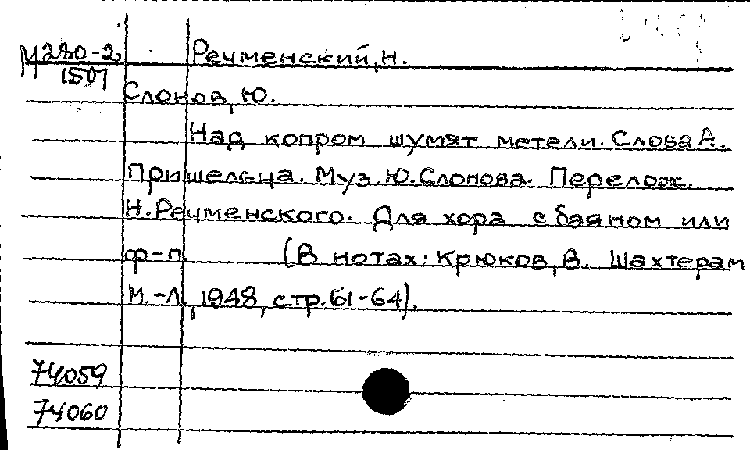 М280-2 Речменский, Н.
1507
Слонов, Ю.
Над копром шумят метели. Слова А.
Пришельца. Муз. Ю.Слонова. Перелож.
Н.Речменского. Для хора с баяном или
ф-п. (В нотах: Крюков, В. Шахтерам
М.-Л., 1948, стр. 61-64).
74059
74060